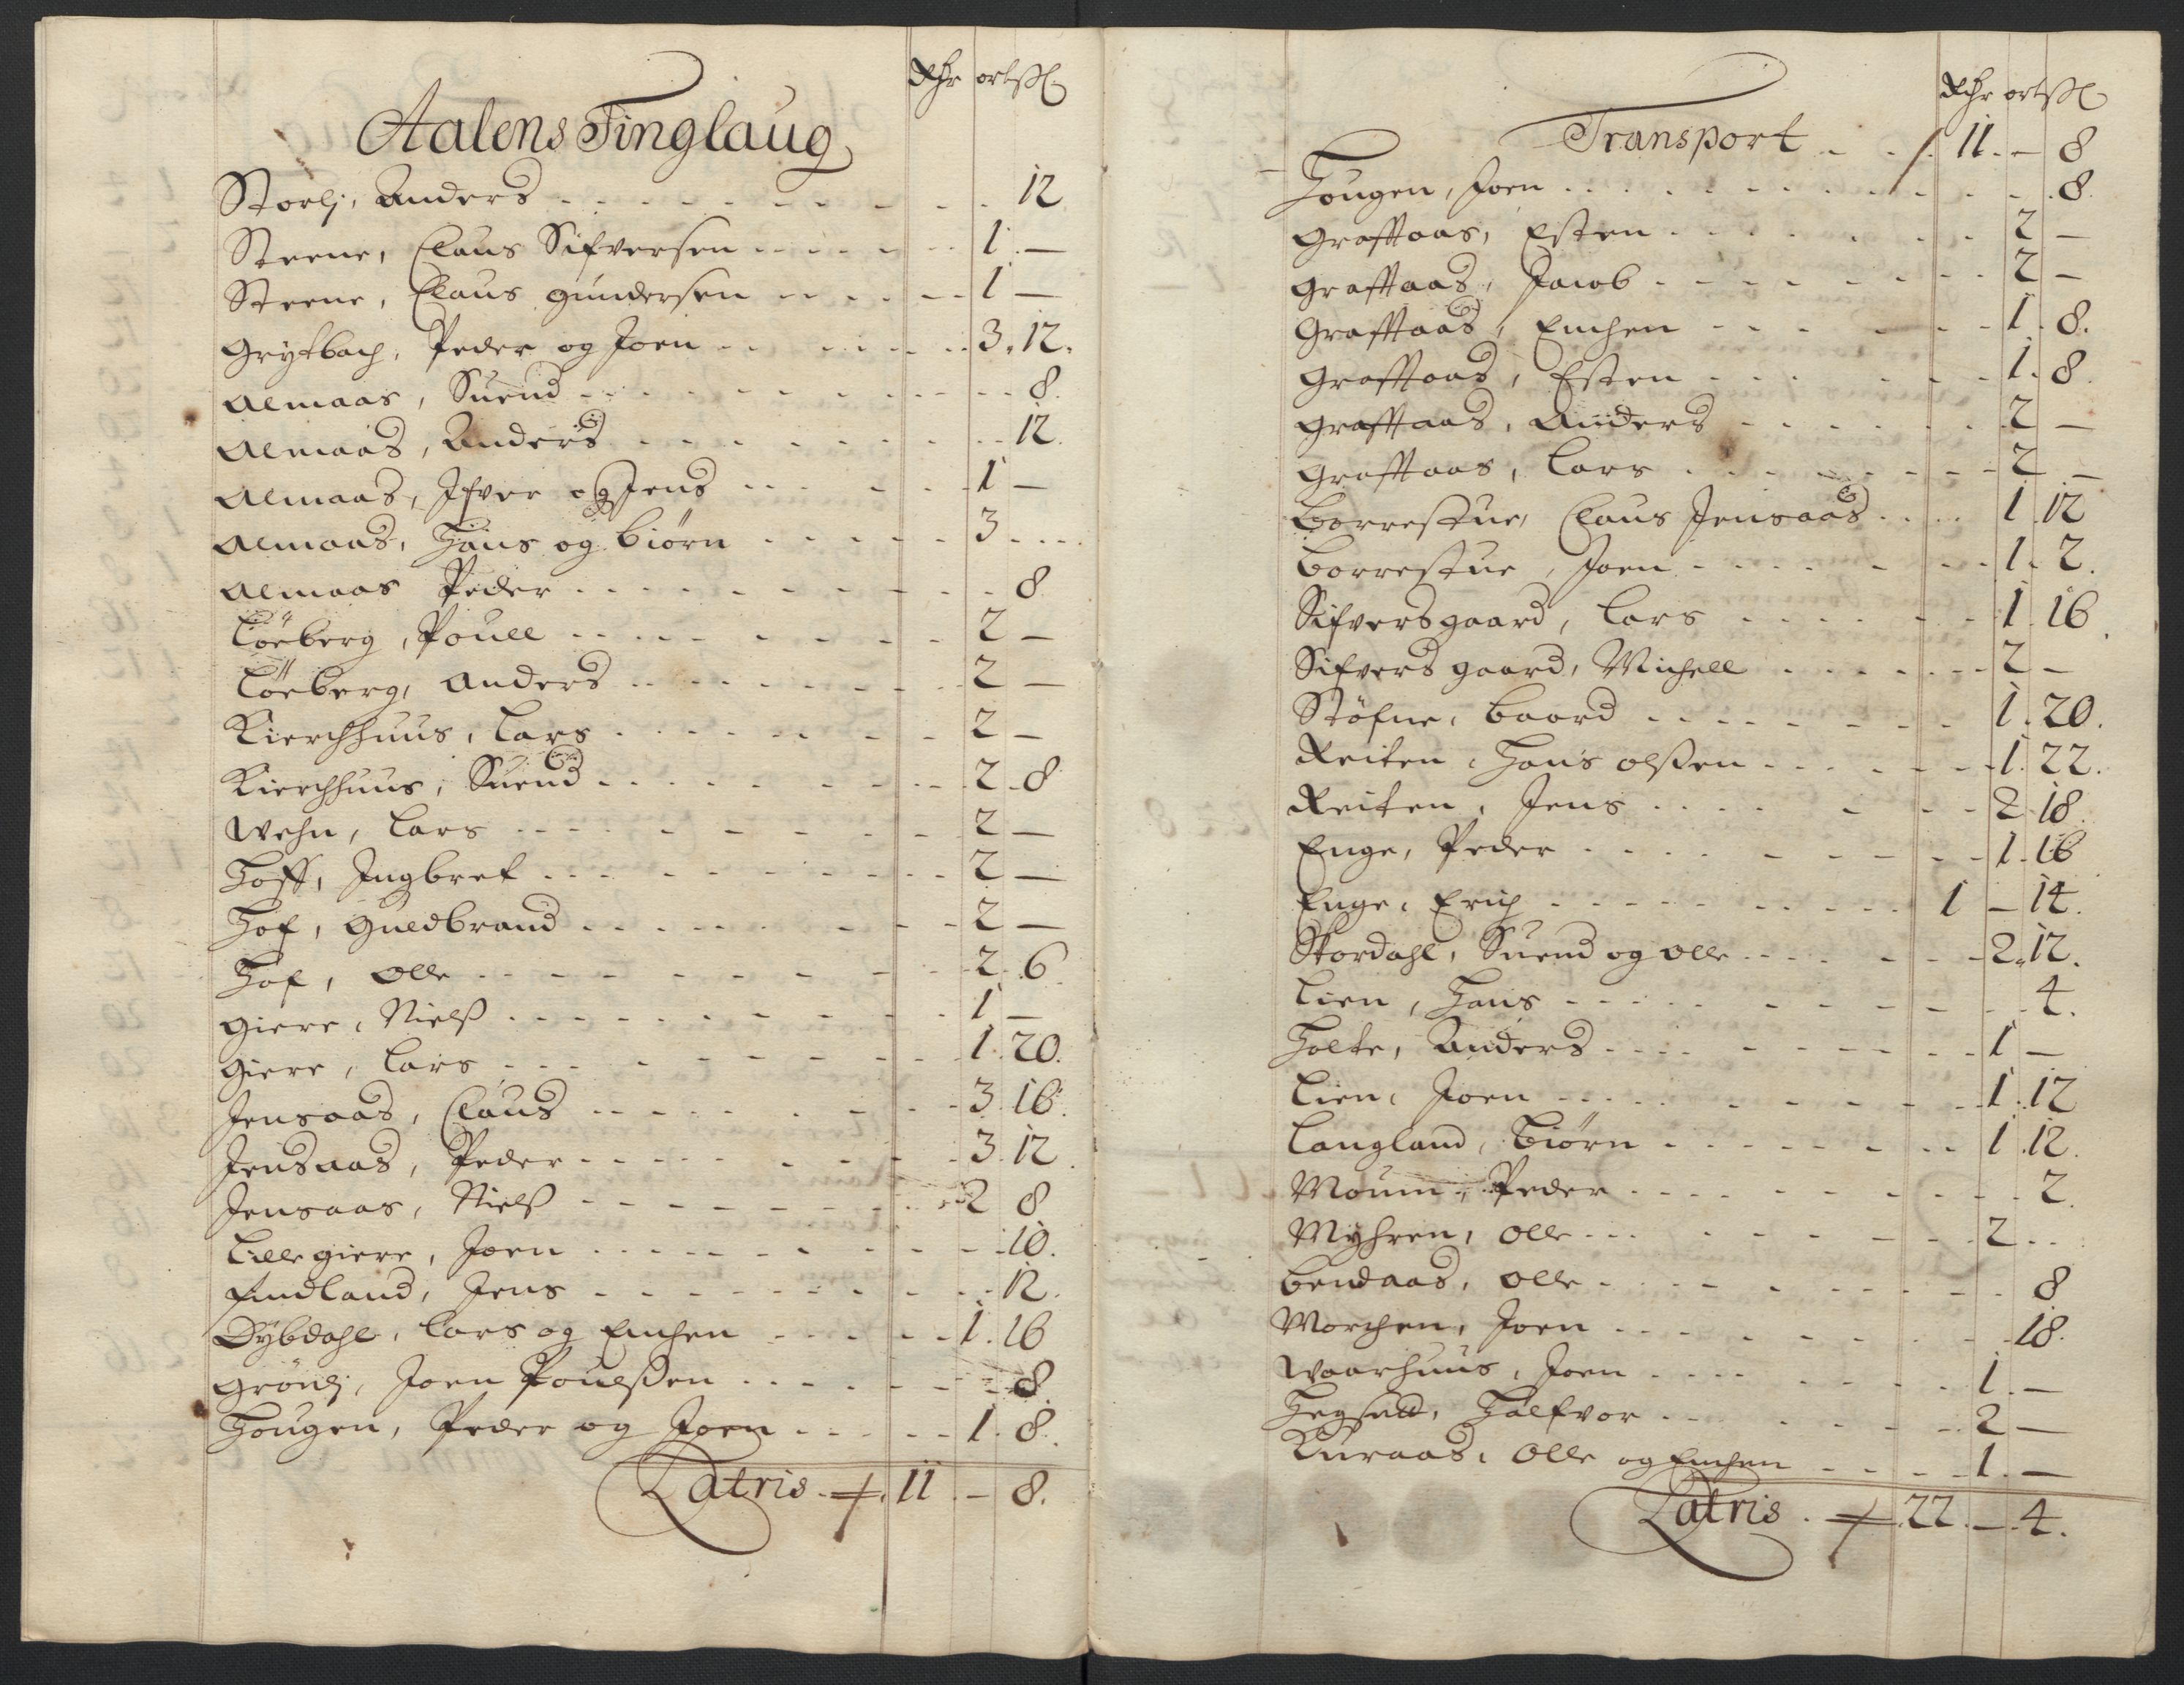 Rdr ort ß
Aalens Tinglaug
Storlj, Anders - - - 12
Steene, Claus Sifversen - - - 1 -
Steene, Claus gundersen - - - 1 -
Grytbach, Peder og Joen - - - 3. 12.
Almaas, Suend - - - 8.
Almaas, Anders - - - 12.
Almaas, Ifver og Jens - - - 1 -
Almaas, Hans og biörn - - - 3 - -
Almaas Peder - - - 8
Löeberg, Pouell - - - 2 -
Löeberg, Anders - - - 2 -
Kierchhuus, Lars - - - 2 -
Kierchhuus, Suend - - - 2. 8
Wehn, Lars - - - 2 -
Hoff, Ingbret - - - 2 -
Hof, Guldbrand - - - 2 -
Hof, Olle - - - 2. 6
Giere, Nielß - - - 1 -
Giere, Lars - - - 1. 20.
Jensaas, Claus - - - 3. 16.
Jensaas, Peder - - - 3. 12.
Jensaas, Nielß - - - 2 8
Lille giere, Joen - - - 10.
Findland, Jens - - - 12.
Dybdahl, Lars og Emhen - - - 1. 16
Grönlj, Joen Pouelßen - - - 8
Hougen, Peder og Joen - - - 1. 8.
Latris - 11 - 8.
Rdr ort ß
Transport - - 11. - 8
Hougen, Joen - - - 8.
Graftaas, Esten - - - 2 -
Graftaas, Jacob - - - 2 -
Graftaas, Emhen - - - 1. 8.
Graftaas, Esten - - - 1. 8.
Graftaas, Anders - - - 2 -
Graftaas, Lars - - - 2 -
Borrestue, Claus Jensaas - - - 1. 12
Borrestue, Joen - - - 1. 2.
Sifversgaard, Lars - - - 1. 16.
Sifversgaard, Michell - - - 2 -
Stöfne, baard - - - 1. 20.
Reiten, Hans olßen - - - 1. 22.
Reiten, Jens - - - 2 18.
Enge, Peder - - - 1. 16
Enge, Erich - - - 1 - 14.
Stordahl, Suend og Olle - - - 2. 12.
Lien, Hans - - - 4.
Holte, Anders - - - 1 -
Lien, Joen - - - 1. 12
Langland, Biörn - - - 1. 12.
Moum, Peder - - - 2.
Myhren, Olle - - - 2 - -
Bendaas, Olle - - - 8
Morchen, Joen - - - 18.
Waarhuus, Joen - - - 1. -
Hegset, Halfvor - - - 2 -
Kuraas, Olle og Emhen - - - 1. -
Latris - 22. - 4.